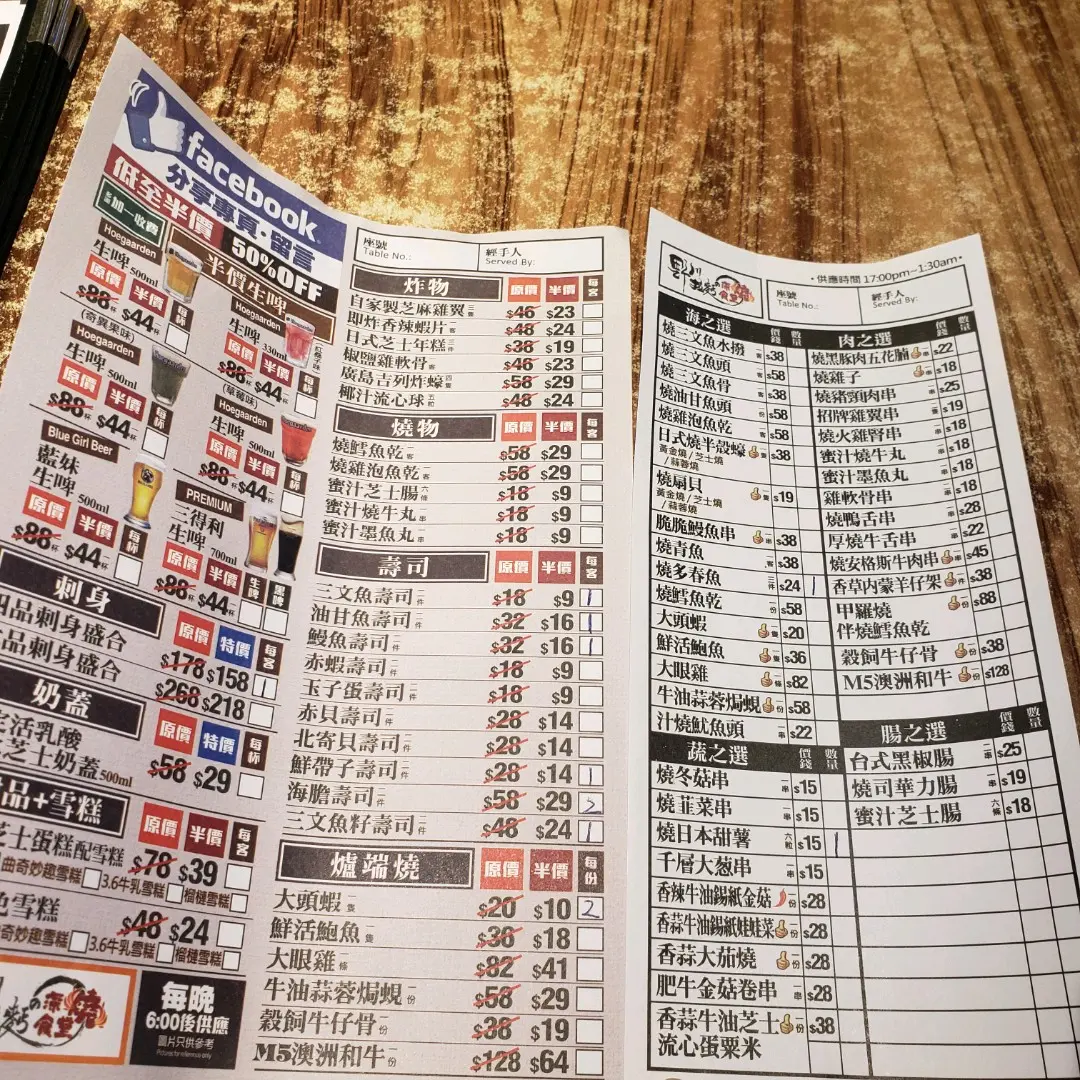 facebook
分享專頁·留言
低至半價 50%OFF
另加一收費
半價生啤
Hoegaarden
生啤 500ml
原價 半價 每杯
$88 杯 $44 杯
Hoegaarden
生啤 330ml
原價 半價 每杯
$88 杯 $44 杯
(奇異果味)
Hoegaarden
生啤 500ml
原價 半價 每杯
$88 杯 $44 杯
(草莓味)
Hoegaarden
生啤 500ml
原價 半價 每杯
$88 杯 $44 杯
Blue Girl Beer
藍妹
生啤 500ml
原價 半價 每杯
$88 杯 $44 杯
PREMIUM
三得利
生啤 700ml
原價 半價 生啤 黑啤
$88 杯 $44 杯
刺身 原價 特價 每客
品刺身盛合 $178 $158 1
品刺身盛合 $268 $218
奶蓋 原價 特價 每杯
活乳酸
芝士奶蓋 500ml $58 $29
品+雪糕 原價 半價 每客
芝士蛋糕配雪糕 $78 $39
曲奇妙趣雪糕 3.6牛乳雪糕 榴槤雪糕
色雪糕 $48 $24
奇妙趣雪糕 3.6牛乳雪糕 榴槤雪糕
の深燒食堂
每晚
6:00後供應
圖片只供參考
Pictures for reference only
座號
Table No.:
經手人
Served By:
炸物 原價 半價 每客
自家製芝麻雞翼 三隻 $46 $23
即炸香辣蝦片 客 $48 $24
日式芝士年糕 三件 $38 $19
椒鹽雞軟骨 客 $46 $23
廣島吉列炸蠔 四隻 $58 $29
椰汁流心球 五粒 $48 $24
燒物 原價 半價 每客
燒鱈魚乾 客 $58 $29
燒雞泡魚乾 客 $58 $29
蜜汁芝士腸 六條 $18 $9
蜜汁燒牛丸 一串 $18 $9
蜜汁墨魚丸 一串 $18 $9
壽司 原價 半價 每客
三文魚壽司 二件 $18 $9 1
油甘魚壽司 二件 $32 $16 1
鰻魚壽司 二件 $32 $16 1
赤蝦壽司 二件 $18 $9
玉子蛋壽司 二件 $18 $9
赤貝壽司 二件 $28 $14
北寄貝壽司 二件 $28 $14
鮮帶子壽司 二件 $28 $14 1
海膽壽司 二件 $58 $29 2
三文魚籽壽司 二件 $48 $24 1
爐端燒 原價 半價 每份
大頭蝦 隻 $20 $10 2
鮮活鮑魚 隻 $36 $18
大眼雞 一條 $82 $41
牛油蒜蓉焗蜆 一份 $58 $29
穀飼牛仔骨 一份 $38 $19
M5澳洲和牛 一份 $128 $64
の深燒食堂
·供應時間 17:00pm~1:30am·
座號
Table No.:
經手人
Served By:
海之選 價錢 數量
燒三文魚水撥 客 $38
燒三文魚頭 客 $58
燒三文魚骨 客 $38
燒油甘魚頭 份 $58
燒雞泡魚乾 客 $58
日式燒半殼蠔 客 $38
黃金燒/芝士燒
/蒜蓉燒
燒扇貝 一隻 $19
黃金燒/芝士燒
/蒜蓉燒
脆脆鰻魚串 一串 $38
燒青魚
燒多春魚 三件 $24 1
燒鱈魚乾 一份 $58
大頭蝦 一隻 $20
鮮活鮑魚 一隻 $36
大眼雞 一條 $82
牛油蒜蓉焗蜆 一份 $58
汁燒魷魚頭 一串 $22
蔬之選 價錢 數量
燒冬菇串 一串 $15
燒韮菜串 一串 $15
燒日本甜薯 六粒 $15 1
千層大葱串 一串 $15
香辣牛油錫紙金菇 一份 $28
香蒜牛油錫紙娃娃菜 一份 $28
香蒜大茄燒 一份 $28
肥牛金菇卷串 一串 $28
香蒜牛油芝士 一份 $38
流心蛋粟米
肉之選 價錢 數量
燒黑豚肉五花腩 一串 $22
燒雞子 一串 $18
燒豬頸肉串 一串 $25
招牌雞翼串 一隻 $19
燒火雞腎串 一串 $18
蜜汁燒牛丸 一串 $18
蜜汁墨魚丸 一串 $18
雞軟骨串 一串 $18
燒鴨舌串 一串 $28
厚燒牛舌串 一串 $22
燒安格斯牛肉串 一串 $45
香草內蒙羊仔架 一件 $38
甲羅燒 一份 $88
伴燒鱈魚乾
穀飼牛仔骨 一份 $38
M5澳洲和牛 一份 $128
腸之選 價錢 數量
台式黑椒腸 一串 $25
燒司華力腸 一串 $19
蜜汁芝士腸 六條 $18